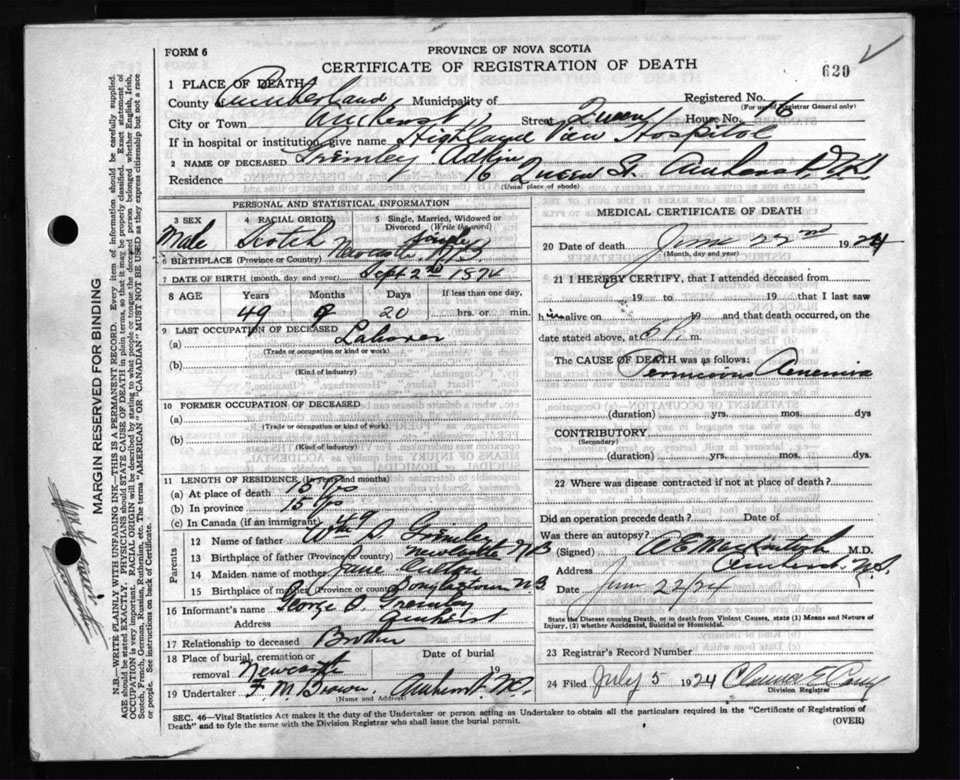 FORM 6
PROVINCE OF NOVA SCOTIA
CERTIFICATE OF REGISTRATION OF DEATH
620
1 PLACE OF DEATH
County Cumberland Municipality of Registered No.
(For use of Registrar General only)
City or Town Amherst Street Queen House No. 6
If in hospital or institution, give name Highland View Hospital
2 NAME OF DECEASED Grimley
Residence 16 Queen St. Amherst, N.S.
(Usual place of abode)
PERSONAL AND STATISTICAL INFORMATION
3 SEX
Male
4 RACIAL ORIGIN
Scotch
5 Single, Married, Widowed or Divorced (Write the word)
Single
6 BIRTHPLACE (Province or Country) Newcastle, N.B.
7 DATE OF BIRTH (month, day, and year) Sept 2nd 1874
8 AGE Years Months Days If less than one day,
49 9 20 hrs. or min.
9 LAST OCCUPATION OF DECEASED
(a) Laborer
(Trade or occupation or kind or work)
(b)
(Kind of industry)
10 FORMER OCCUPATION OF DECEASED
(a)
(Trade or occupation or kind of work)
(b)
(Kind of industry)
11 LENGTH OF RESIDENCE (In years and months)
(a) At place of death 15 yrs
(b) In province 15 yrs
(c) In Canada (if an immigrant) 49
Parents
12 Name of father Wm Grimley
13 Birthplace of father (Province or country) Newcastle N B
14 Maiden name of mother Jane
15 Birthplace of mother (Province or country) Douglastown N.B
16 Informant's name George
Address Amherst
17 Relationship to deceased Brother
18 Place of burial, cremation or removal Newcastle Date of burial 19
19 Undertaker F. M. Brown Amherst. N.S.
(Name and Address)
MEDICAL CERTIFICATE OF DEATH
20 Date of death June 22nd 1924
(Month, day and year)
21 I HEREBY CERTIFY, that I attended deceased from
19 to 19 that I last saw
him alive on 19 and that death occurred, on the
date stated above, at P. m.
The CAUSE OF DEATH was as follows:
Pernicious Anaemia
(duration) yrs. mos. dys
CONTRIBUTORY
(Secondary)
(duration) yrs. mos. dys.
22 Where was disease contracted if not at place of death?
Did an operation precede death? Date of
Was there an autopsy?
(Signed) M.D.
Address Amherst. N.S.
Date June 22/24
State the Disease causing Death, or in death from Violent Causes, state (1) Means and Nature of Injury, (2) whether Accidental, Suicidal or Homicidal.
23 Registrar's Record Number
24 Filed July 5 1924 Clarence E
Division Registrar
SEC. 46—Vital Statistics Act makes it the duty of the Undertaker or person acting as Undertaker to obtain all the particulars required in the "Certificate of Registration of Death" and to fyle the same with the Division Registrar who shall issue the burial permit.
(OVER)
MARGIN RESERVED FOR BINDING
N.B.—WRITE PLAINLY WITH UNFADING INK—THIS IS A PERMANENT RECORD. Every item of information should be carefully supplied.
AGE should be stated EXACTLY. PHYSICIANS should STATE CAUSE OF DEATH in plain terms, so that it may be properly classified. Exact statement of
OCCUPATION is very important. RACIAL ORIGIN will be described by stating to what people or tongue the deceased person belonged whether English, Irish,
Scotch, French, German, Russian, Ruthenian, etc. The terms "AMERICAN" OR "CANADIAN" MUST NOT BE USED as they express citizenship but not a race
or people. See instructions on back of Certificate.